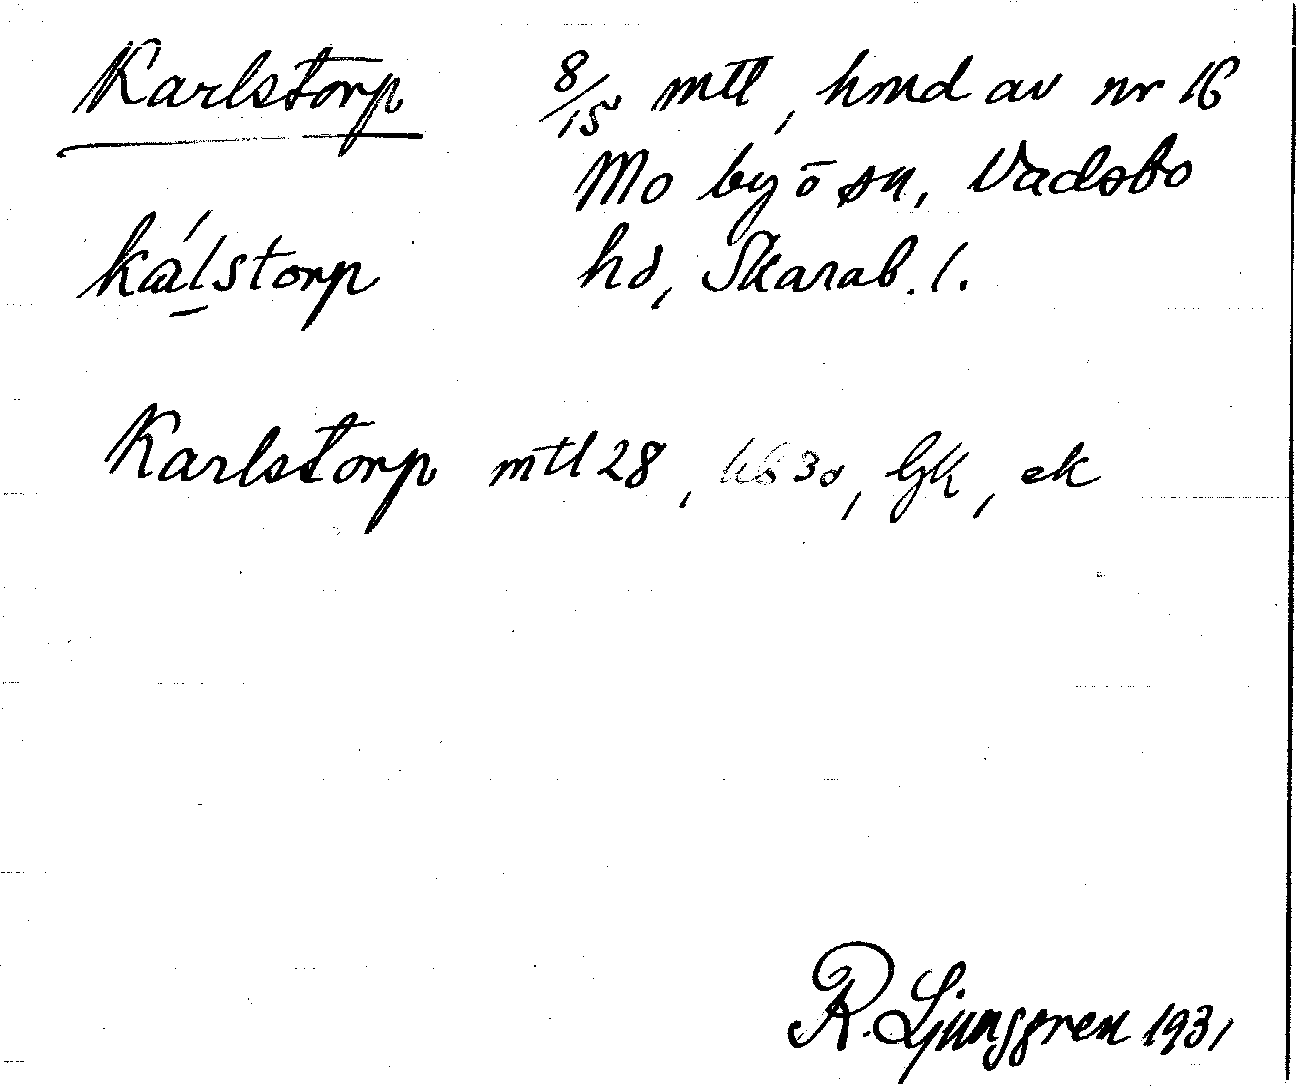 Karlstorp 8/15 mtl, hmd av nr 16
Mo by o sn, Vadsbo
kálstorp hd, Skarab. l.
Karlstorp mtl 28, kb 30, Gk, ek
R. Ljunggren 1931